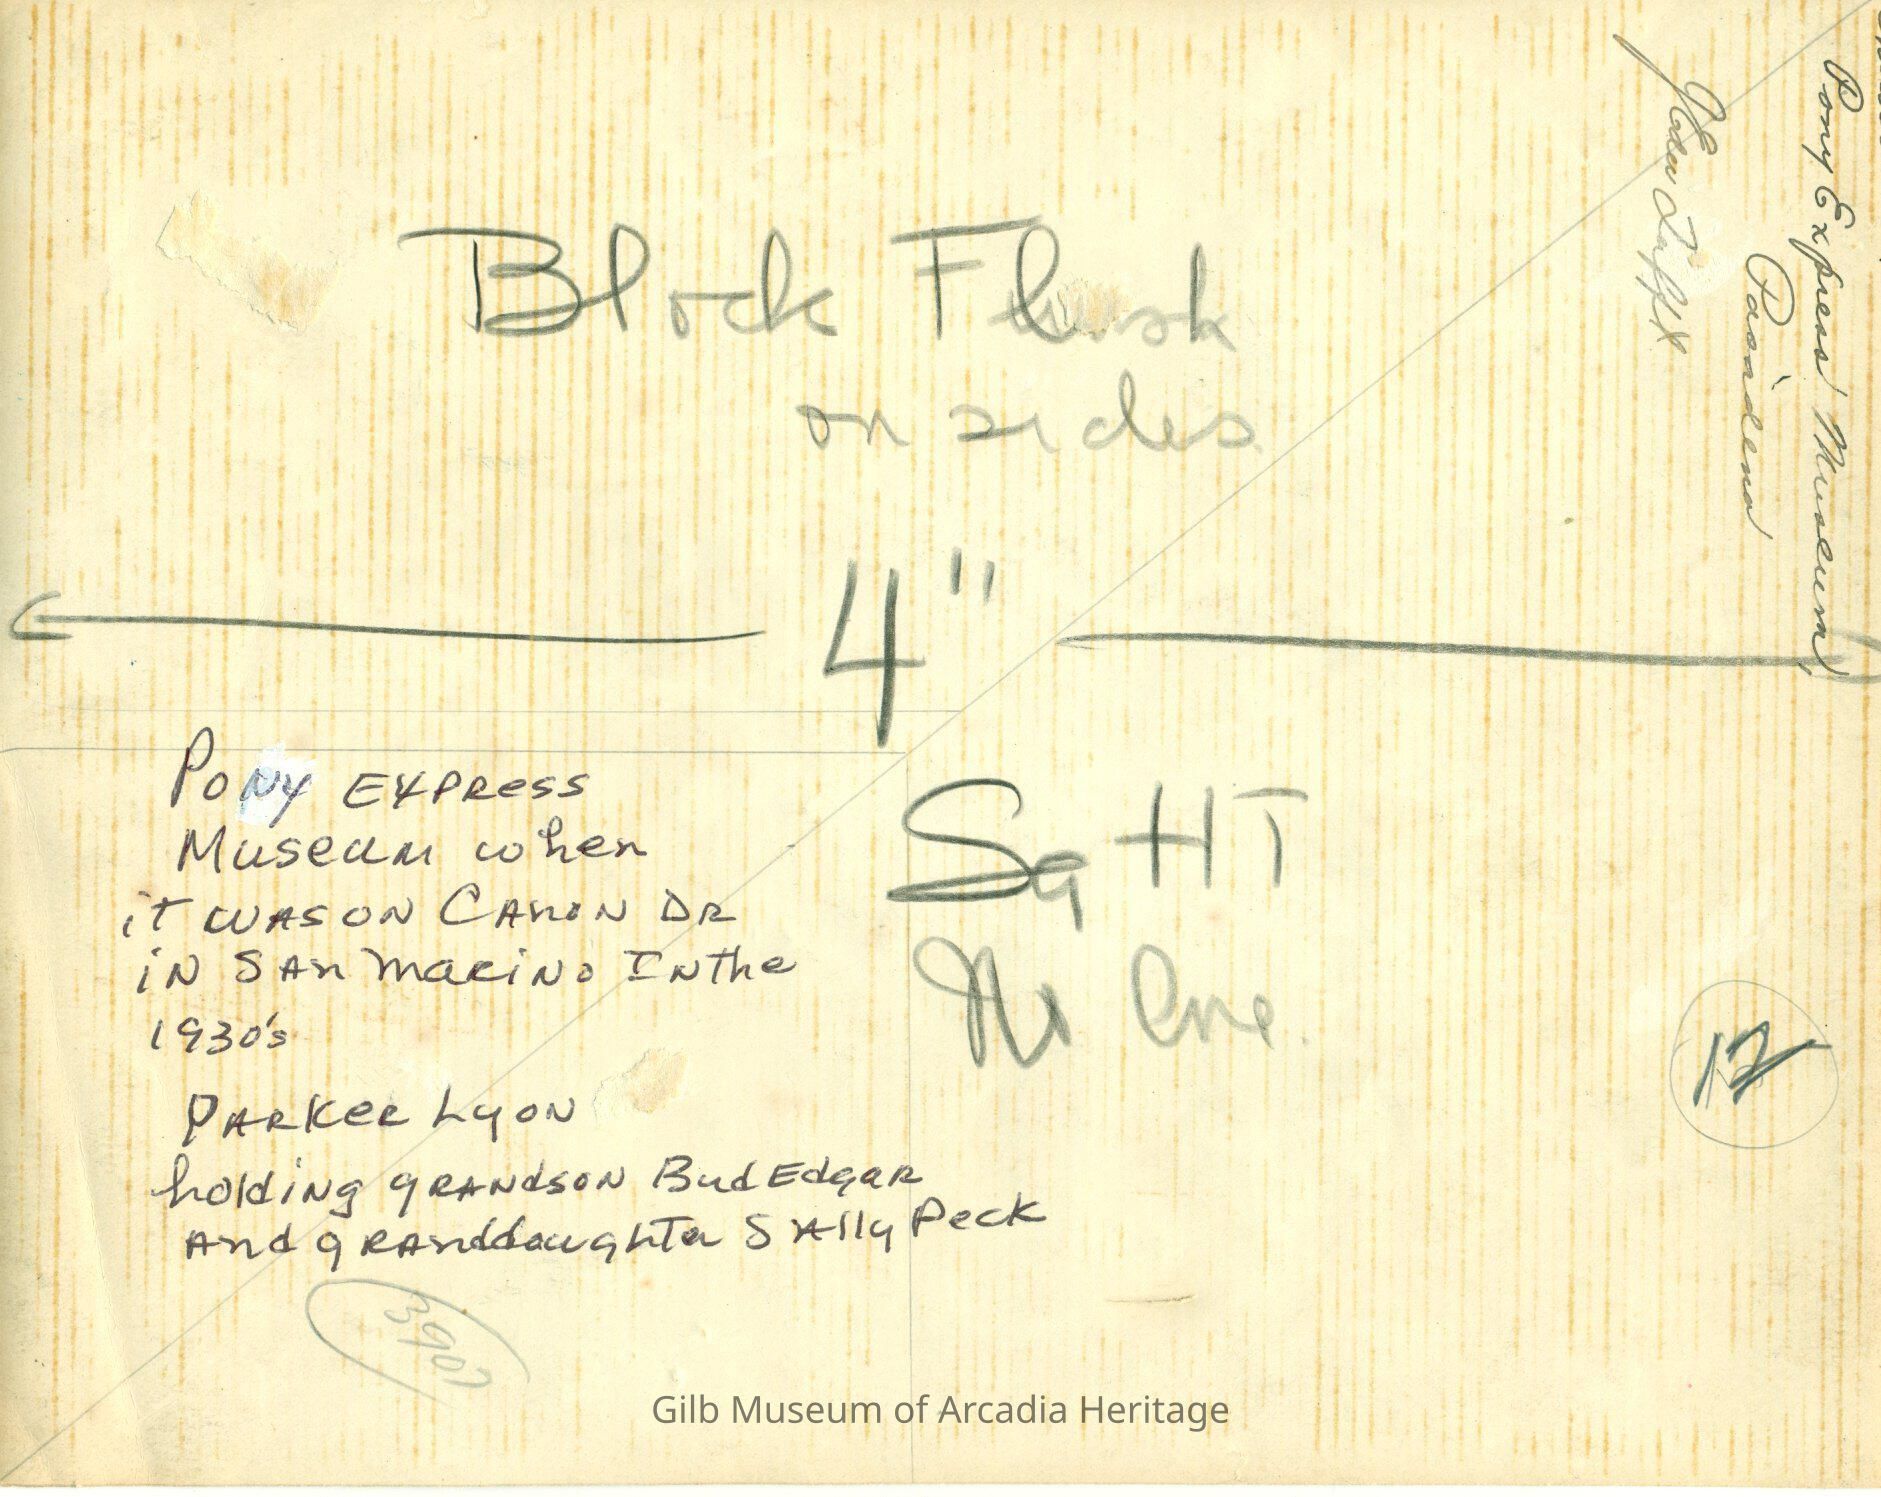 Block Flush
on sides
4"
PONY EXPRESS
Museum when
it was on Canon Dr
in San Marino In the
1930's
Parker Lyon
holding grandson Bud Edgar
and granddaughter Sally Peck
Sq HT
12
Pony Express Museum,
Pasadena
Gilb Museum of Arcadia Heritage